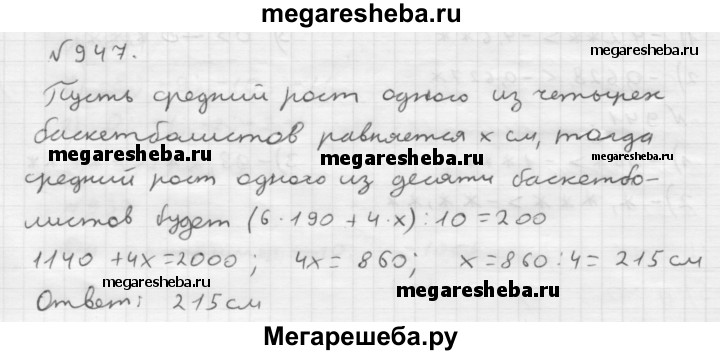 megaresheba.ru
№947.
megaresheba.ru
Пусть средний рост одного из четырех
баскетбалистов равняется x см, тогда
megaresheba.ru megaresheba.ru megaresheba.ru
средний рост одного из десяти баскетбо-
листов будет (6·190 + 4·x):10 = 200
1140 + 4x = 2000; 4x = 860; x = 860:4 = 215 см
megaresheba.ru megaresheba.ru
Ответ: 215 см
Мегарешеба.ру